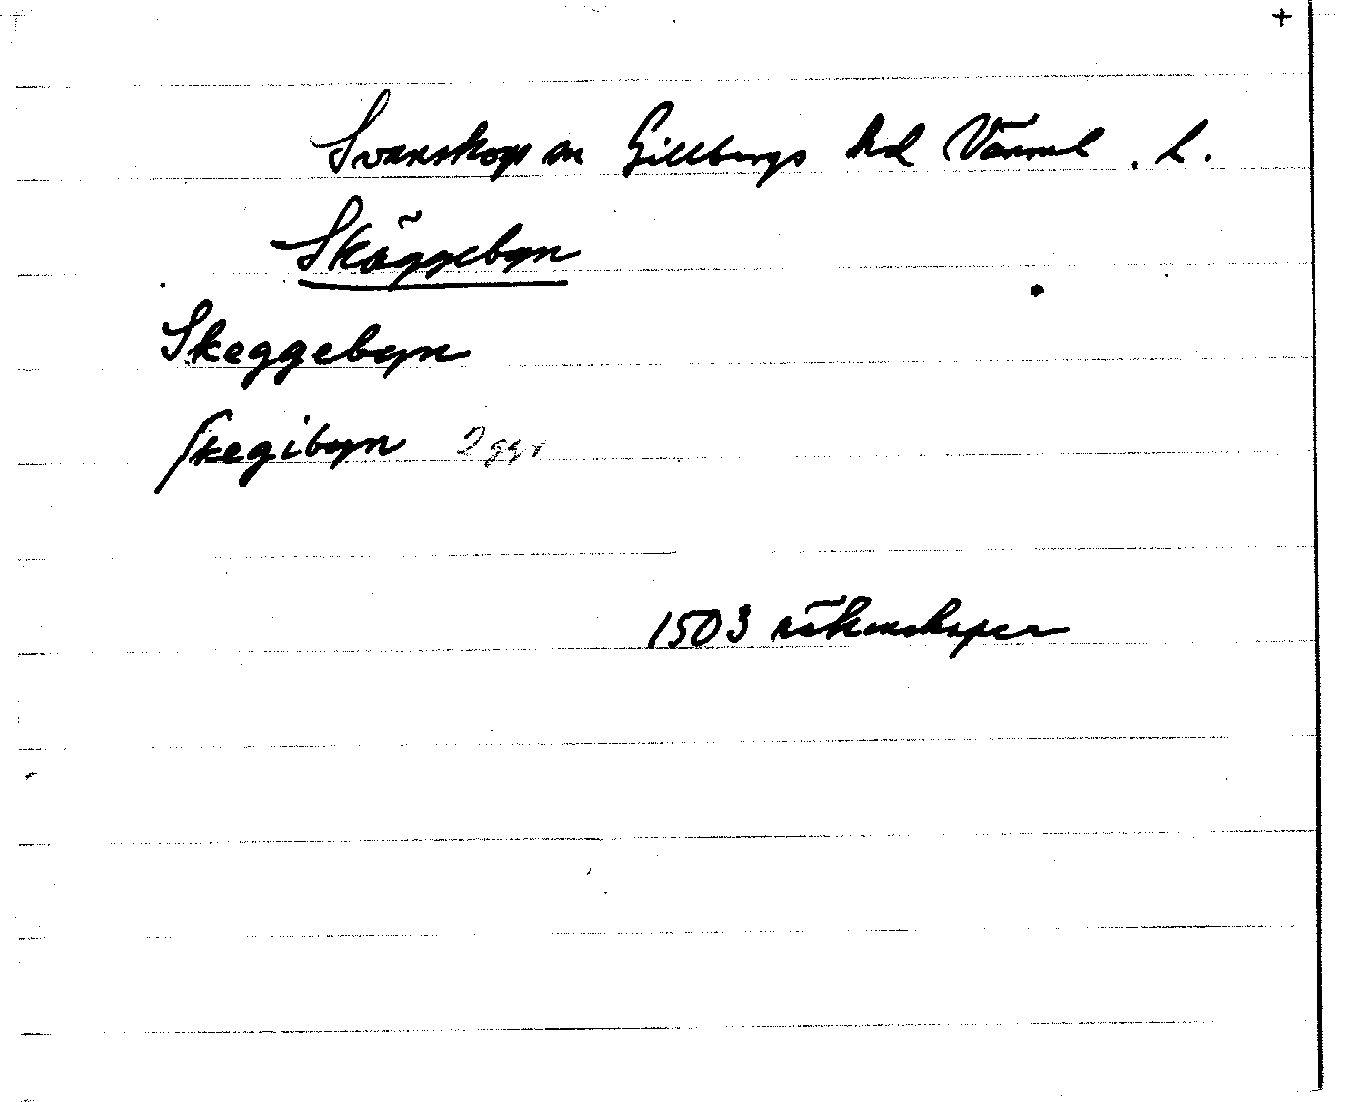 +
Svanskogs sn Gillbergs hd Värml. L.
Skäggebyn
Skeggebyn
Skegibyn 2 ggr
1503 räkenskaper